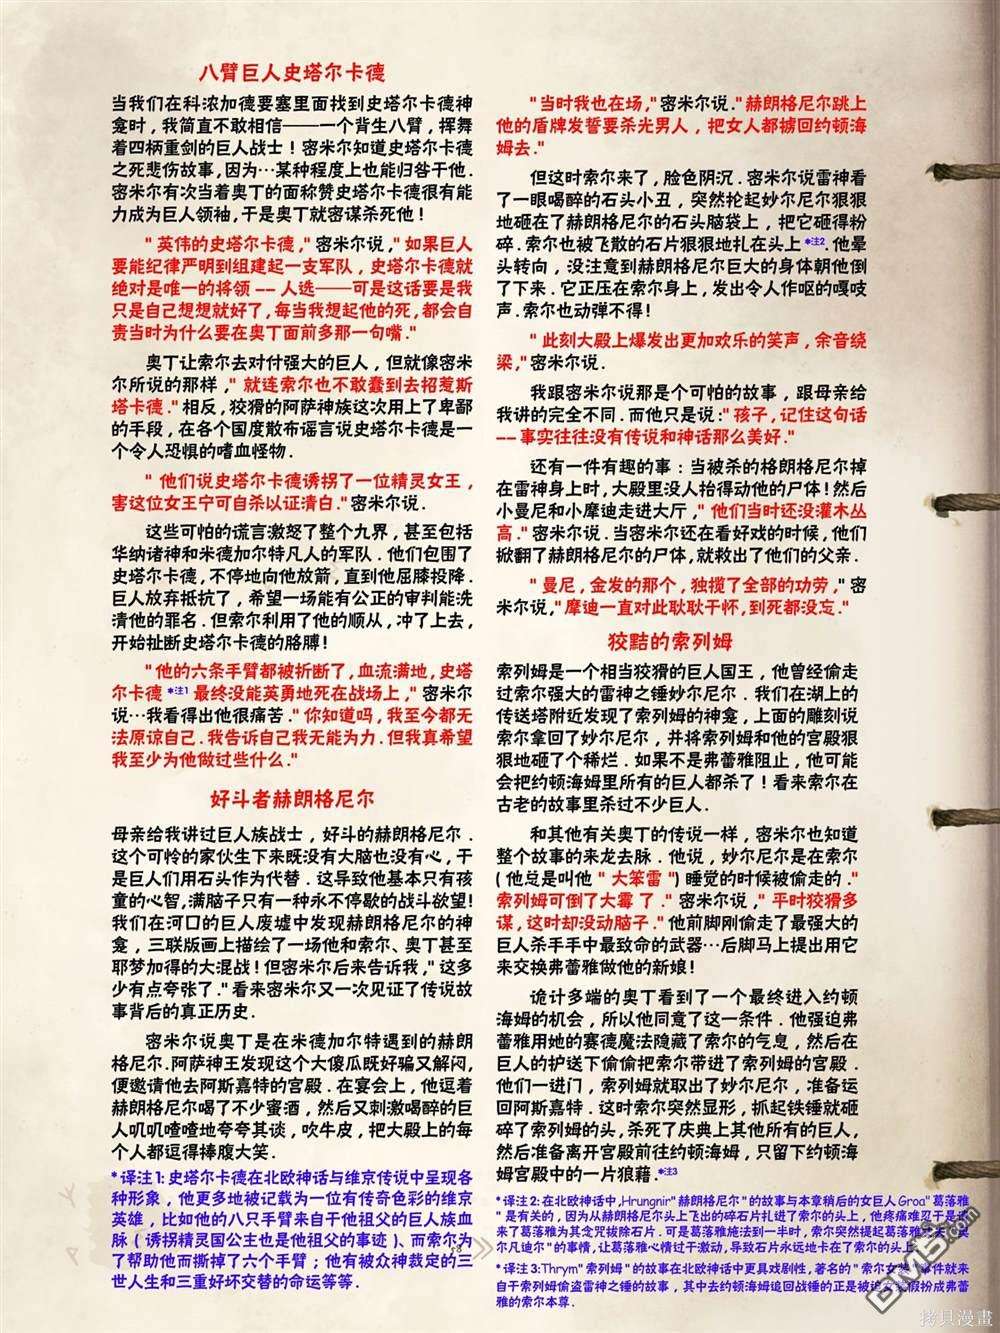 八臂巨人史塔尔卡德
当我们在科浓加德要塞里面找到史塔尔卡德神
龛时，我简直不敢相信——一个背生八臂，挥舞
着四柄重剑的巨人战士！密米尔知道史塔尔卡德
之死悲伤故事，因为…某种程度上也能归咎于他．
密米尔有次当着奥丁的面称赞史塔尔卡德很有能
力成为巨人领袖，于是奥丁就密谋杀死他！
"英伟的史塔尔卡德，"密米尔说，"如果巨人
要能纪律严明到组建起一支军队，史塔尔卡德就
绝对是唯一的将领 -- 人选——可是这话要是我
只是自己想想就好了，每当我想起他的死，都会自
责当时为什么要在奥丁面前多那一句嘴．"
奥丁让索尔去对付强大的巨人，但就像密米
尔所说的那样，"就连索尔也不敢蠢到去招惹斯
塔卡德．"相反，狡猾的阿萨神族这次用上了卑鄙
的手段，在各个国度散布谣言说史塔尔卡德是一
个令人恐惧的嗜血怪物．
"他们说史塔尔卡德诱拐了一位精灵女王，
害这位女王宁可自杀以证清白．"密米尔说．
这些可怕的谎言激怒了整个九界，甚至包括
华纳诸神和米德加尔特凡人的军队．他们包围了
史塔尔卡德，不停地向他放箭，直到他屈膝投降．
巨人放弃抵抗了，希望一场能有公正的审判能洗
清他的罪名．但索尔利用了他的顺从，冲了上去，
开始扯断史塔尔卡德的胳膊！
"他的六条手臂都被折断了，血流满地，史塔
尔卡德 *注1 最终没能英勇地死在战场上，"密米尔
说…我看得出他很痛苦．"你知道吗，我至今都无
法原谅自己．我告诉自己我无能为力．但我真希望
我至少为他做过些什么．"
好斗者赫朗格尼尔
母亲给我讲过巨人族战士，好斗的赫朗格尼尔．
这个可怜的家伙生下来既没有大脑也没有心，于
是巨人们用石头作为代替．这导致他基本只有孩
童的心智，满脑子只有一种永不停歇的战斗欲望！
我们在河口的巨人废墟中发现赫朗格尼尔的神
龛，三联版画上描绘了一场他和索尔、奥丁甚至
耶梦加得的大混战！但密米尔后来告诉我，"这多
少有点夸张了．"看来密米尔又一次见证了传说故
事背后的真正历史．
密米尔说奥丁是在米德加尔特遇到的赫朗
格尼尔．阿萨神王发现这个大傻瓜既好骗又解闷，
便邀请他去阿斯嘉特的宫殿．在宴会上，他逗着
赫朗格尼尔喝了不少蜜酒，然后又刺激喝醉的巨
人叽叽喳喳地夸夸其谈，吹牛皮，把大殿上的每
个人都逗得捧腹大笑．
*译注1：史塔尔卡德在北欧神话与维京传说中呈现各
种形象，他更多地被记载为一位有传奇色彩的维京
英雄，比如他的八只手臂来自于他祖父的巨人族血
脉（诱拐精灵国公主也是他祖父的事迹）、而索尔为
了帮助他而撕掉了六个手臂；他有被众神裁定的三
世人生和三重好坏交替的命运等等．
"当时我也在场，"密米尔说．"赫朗格尼尔跳上
他的盾牌发誓要杀光男人，把女人都掳回约顿海
姆去．"
但这时索尔来了，脸色阴沉．密米尔说雷神看
了一眼喝醉的石头小丑，突然抡起妙尔尼尔狠狠
地砸在了赫朗格尼尔的石头脑袋上，把它砸得粉
碎．索尔也被飞散的石片狠狠地扎在头上 *注2．他晕
头转向，没注意到赫朗格尼尔巨大的身体朝他倒
了下来．它正压在索尔身上，发出令人作呕的嘎吱
声．索尔也动弹不得！
"此刻大殿上爆发出更加欢乐的笑声，余音绕
梁，"密米尔说．
我跟密米尔说那是个可怕的故事，跟母亲给
我讲的完全不同．而他只是说："孩子，记住这句话
-- 事实往往没有传说和神话那么美好．"
还有一件有趣的事：当被杀的格朗格尼尔掉
在雷神身上时，大殿里没人抬得动他的尸体！然后
小曼尼和小摩迪走进大厅，"他们当时还没灌木丛
高．"密米尔说．当密米尔还在看好戏的时候，他们
掀翻了赫朗格尼尔的尸体，就救出了他们的父亲．
"曼尼，金发的那个，独揽了全部的功劳，"密
米尔说，"摩迪一直对此耿耿于怀，到死都没忘．"
狡黠的索列姆
索列姆是一个相当狡猾的巨人国王，他曾经偷走
过索尔强大的雷神之锤妙尔尼尔．我们在湖上的
传送塔附近发现了索列姆的神龛，上面的雕刻说
索尔拿回了妙尔尼尔，并将索列姆和他的宫殿狠
狠地砸了个稀烂．如果不是弗蕾雅阻止，他可能
会把约顿海姆里所有的巨人都杀了！看来索尔在
古老的故事里杀过不少巨人．
和其他有关奥丁的传说一样，密米尔也知道
整个故事的来龙去脉．他说，妙尔尼尔是在索尔
（他总是叫他"大笨雷"）睡觉的时候被偷走的．"
索列姆可倒了大霉了．"密米尔说，"平时狡猾多
谋，这时却没动脑子．"他前脚刚偷走了最强大的
巨人杀手手中最致命的武器…后脚马上提出用它
来交换弗蕾雅做他的新娘！
诡计多端的奥丁看到了一个最终进入约顿
海姆的机会，所以他同意了这一条件．他强迫弗
蕾雅用她的赛德魔法隐藏了索尔的气息，然后在
巨人的护送下偷偷把索尔带进了索列姆的宫殿．
他们一进门，索列姆就取出了妙尔尼尔，准备运
回阿斯嘉特．这时索尔突然显形，抓起铁锤就砸
碎了索列姆的头，杀死了庆典上其他所有的巨人，
然后准备离开宫殿前往约顿海姆，只留下约顿海
姆宫殿中的一片狼藉．*注3
*译注2：在北欧神话中，Hrungnir"赫朗格尼尔"的故事与本章稍后的女巨人Groa"葛落雅
"是有关的，因为从赫朗格尼尔头上飞出的碎石片扎进了索尔的头上，他疼痛难忍于是进
来了葛落雅为其念咒拔除石片．可是葛落雅施法到一半时，索尔突然提起葛落雅
凡迪尔"的事情，让葛落雅心情过于激动，导致石片永远地卡在了索尔的头上．
*译注3：Thrym"索列姆"的故事在北欧神话中更具戏剧性，著名的"索尔女装"事件就来
自于索列姆偷盗雷神之锤的故事，其中去约顿海姆追回战锤的正是被迫女装假扮成弗蕾
雅的索尔本尊．
18
DM5.com
拷貝漫畫